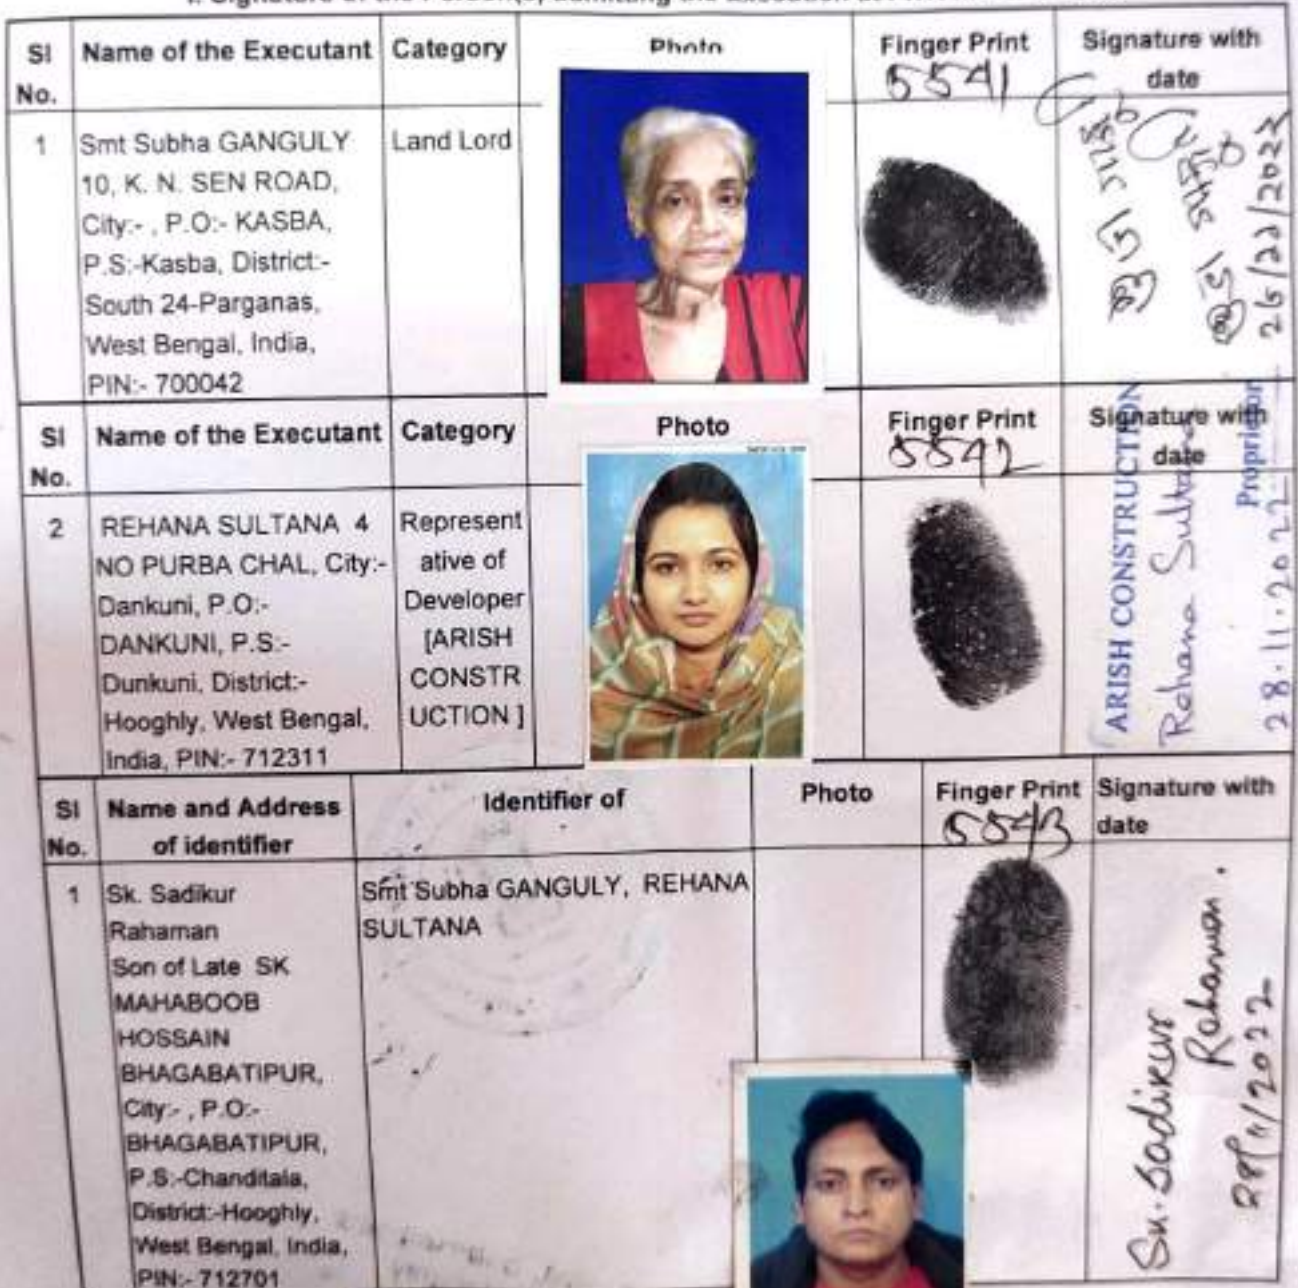 SI No.
Name of the Executant
Category
Photo
Finger Print
5541
Signature with date
1
Smt Subha GANGULY
10, K. N. SEN ROAD,
City:- , P.O:- KASBA,
P.S:-Kasba, District:-
South 24-Parganas,
West Bengal, India,
PIN:- 700042
Land Lord
SI No.
Name of the Executant
Category
Photo
Finger Print
5542
Signature with date
2
REHANA SULTANA 4
NO PURBA CHAL, City:-
Dankuni, P.O:-
DANKUNI, P.S:-
Dunkuni, District:-
Hooghly, West Bengal,
India, PIN:- 712311
Represent
ative of
Developer
[ARISH
CONSTR
UCTION ]
ARISH CONSTRUCTION
Rehana Sultana
Proprietor
28.11.2022
SI No.
Name and Address
of identifier
Identifier of
Photo
Finger Print
5543
Signature with
date
1
Sk. Sadikur
Rahaman
Son of Late SK
MAHABOOB
HOSSAIN
BHAGABATIPUR,
City:- , P.O:-
BHAGABATIPUR,
P.S:-Chanditala,
District:-Hooghly,
West Bengal, India,
PIN:- 712701
Smt Subha GANGULY, REHANA
SULTANA
Sk. Sadikur
Rahaman.
28/11/2022